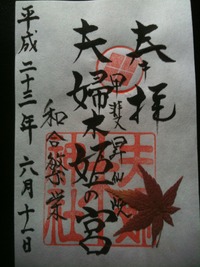 奉拝
甲斐昇仙峡
夫婦木姫の宮
和合繁栄
平成二十三年 六月十一日